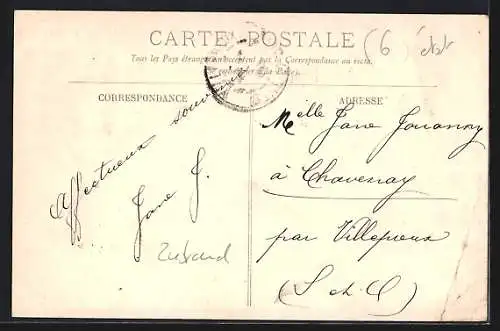 CARTE POSTALE
Tous les Pays étrangers n'acceptent pas la Correspondance au recto.
CORRESPONDANCE
ADRESSE
Affectueux souvenir
Jane J.
Melle Jane Jouanny
à Chavenay
par Villepreux
(S et O)
(6